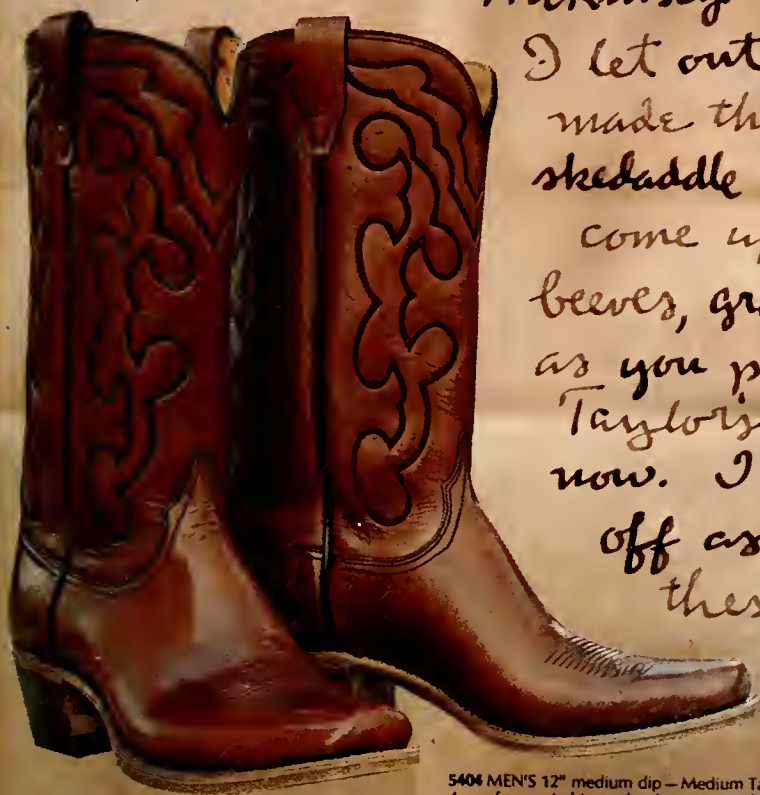 I let out
made th
skedaddle
come u
beeves, gr
as you p
Taylor's
now. I
off as
thes
5404 MEN'S 12" medium dip – Medium Ta